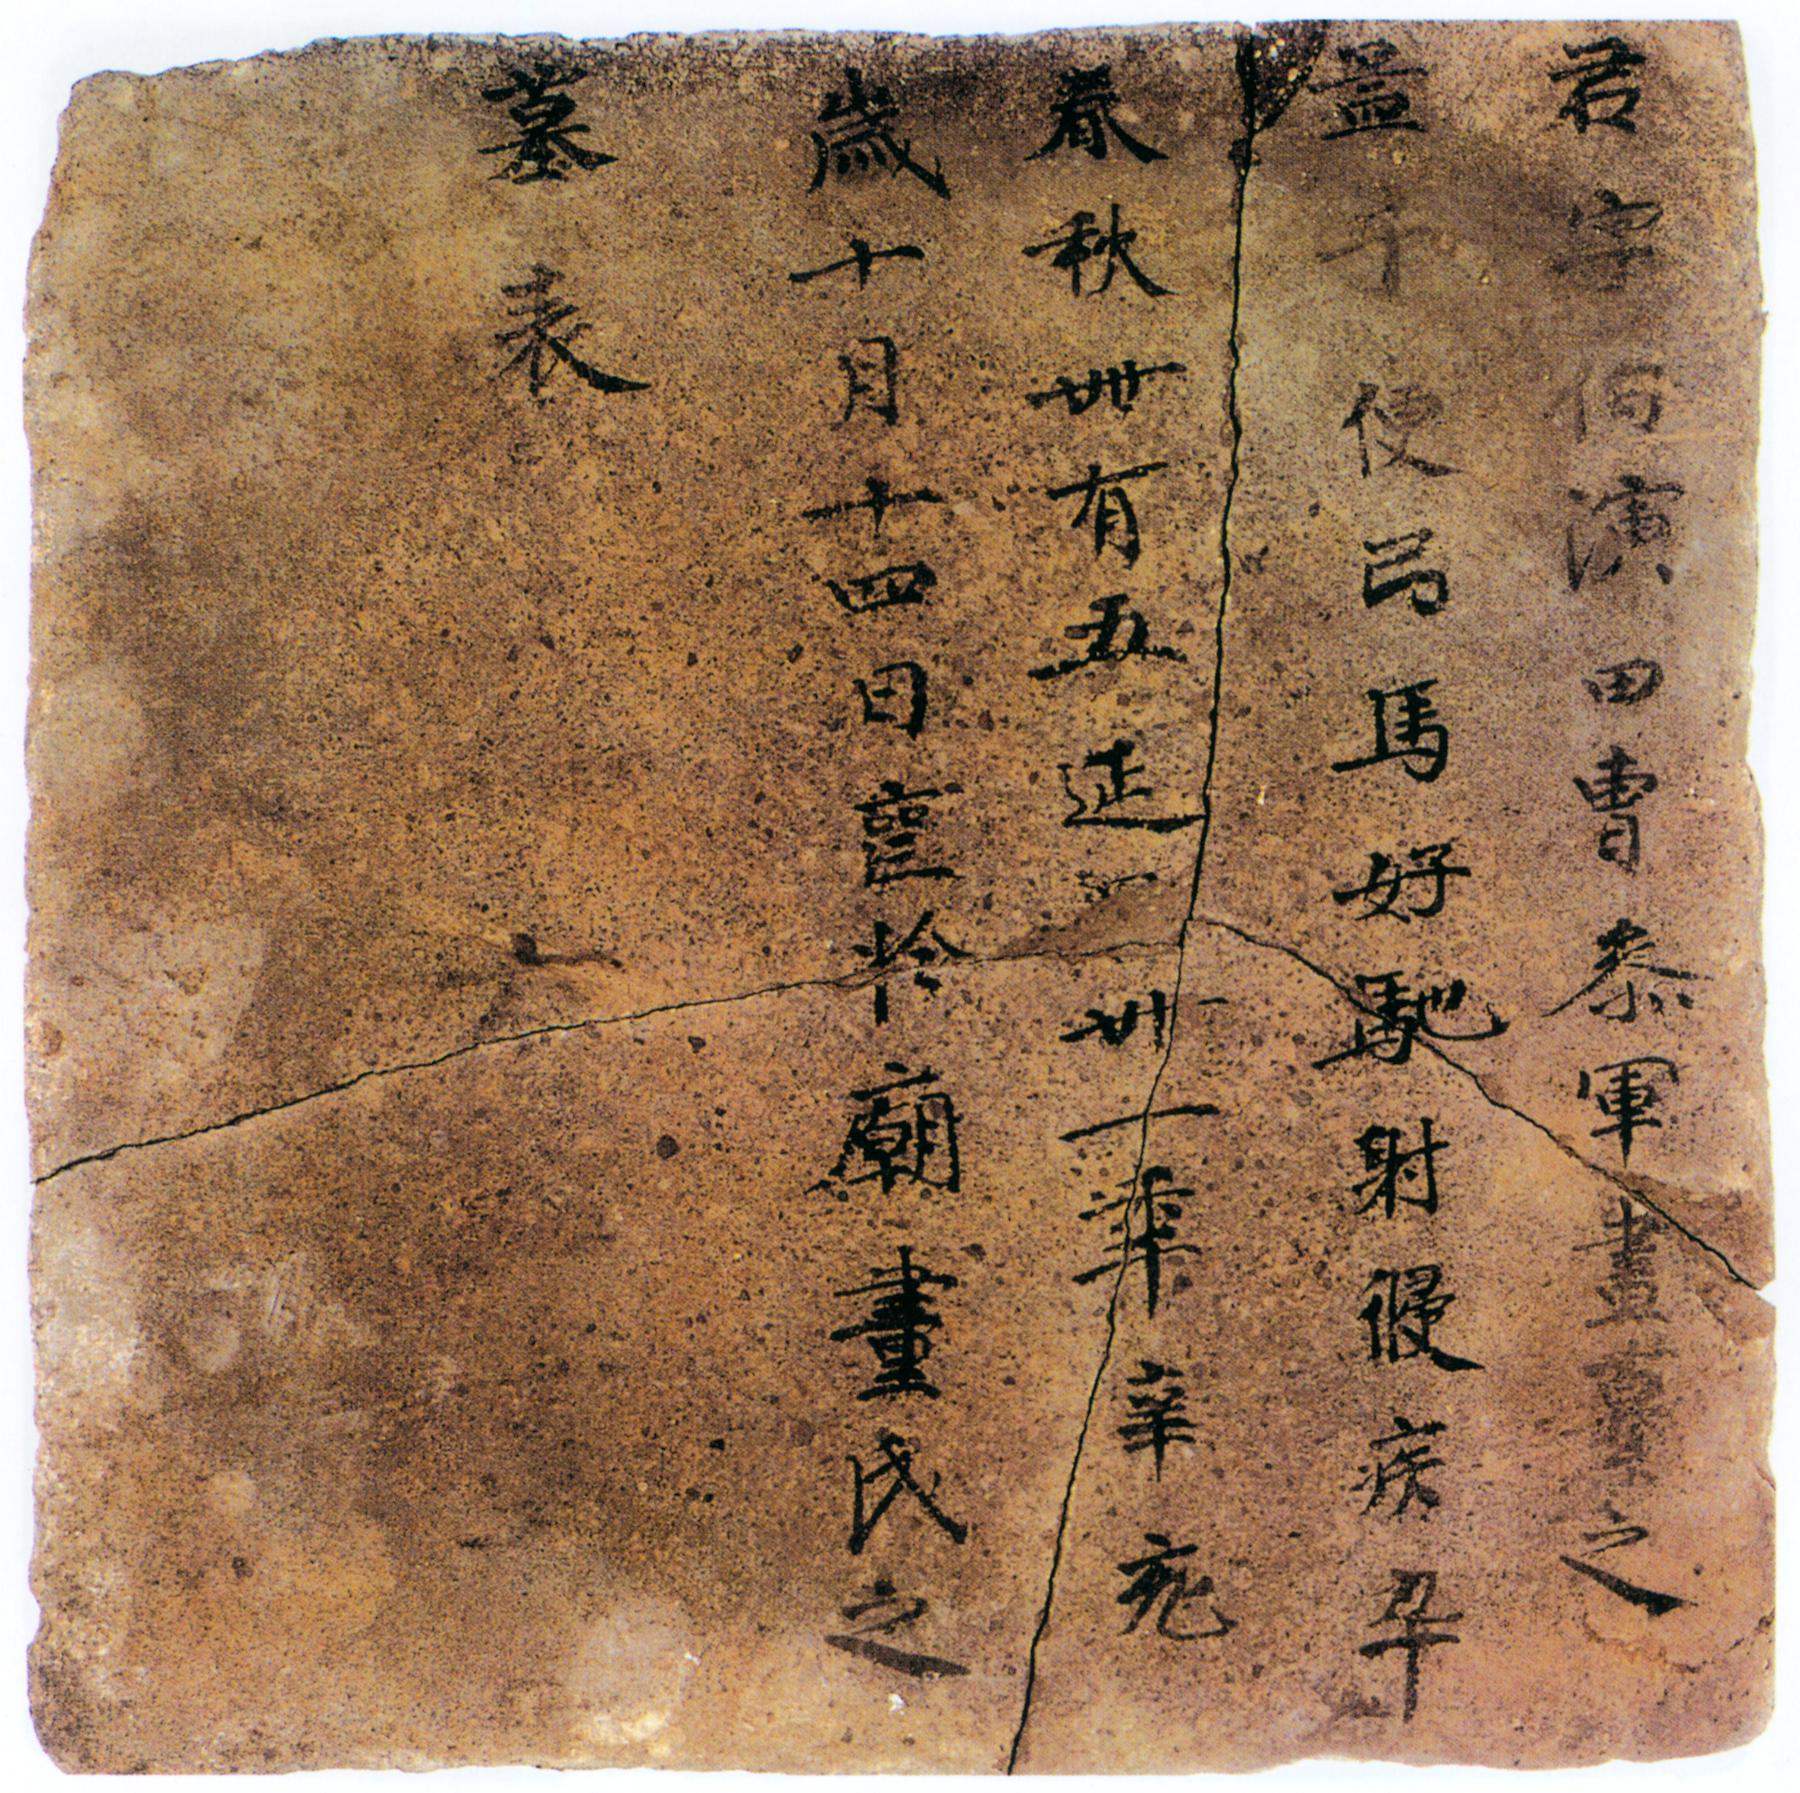 君字伯演田曹參軍畫之
孟子便弓馬好馳射寢疾卒
春秋卌有五延卅一年辛亥
歲十月十四日喪於廟畫氏之
墓表